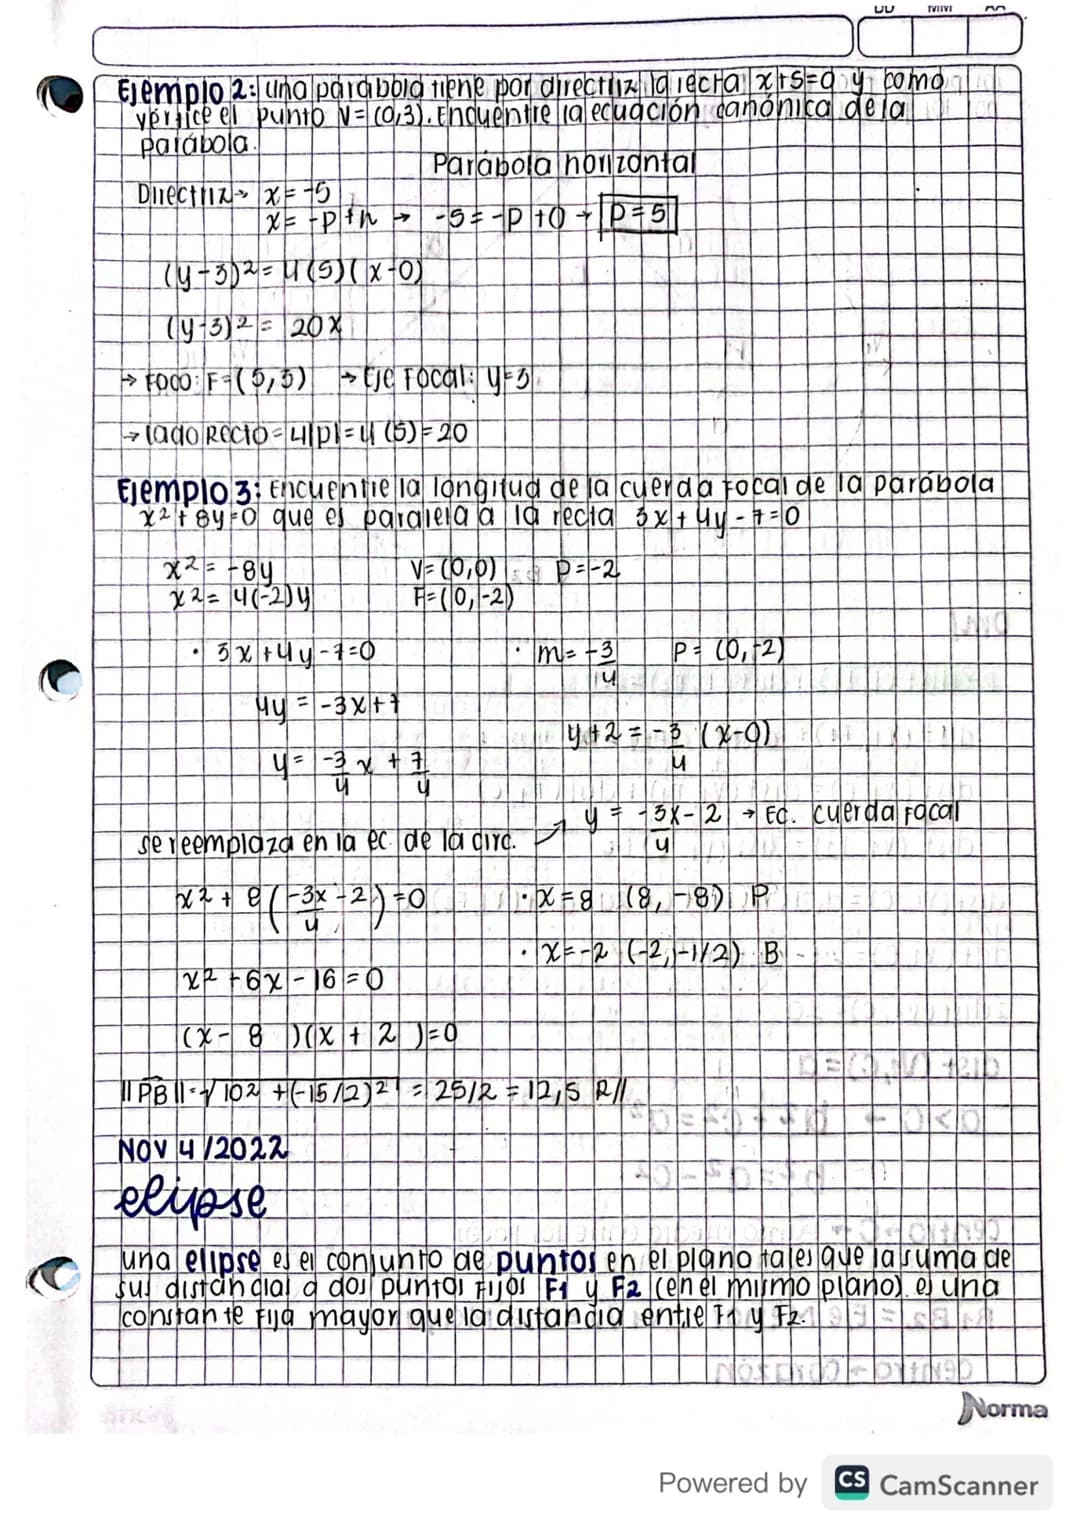 DD MM AA
Ejemplo 2: una parábola tiene por directriz la recta x+5=0 y como
vértice el punto V= (0,3). Encuentre la ecuación canónica de la
parábola.
Parábola horizontal
Directriz→ x= -5
x= -p+h → -5= -p+0 → p=5
(y-3)²= 4(5)(x-0)
(y-3)²= 20x
→ Foco: F=(5,3) → Eje Focal: y=3
→ lado Recto=4|p|=4(5)=20
Ejemplo 3: Encuentre la longitud de la cuerda focal de la parábola
x²+8y=0 que es paralela a la recta 3x+4y-7=0
x²= -8y V= (0,0) p=-2
x²= 4(-2)y F=(0,-2)
· 3x+4y-7=0 · m= -3/4 P= (0,-2)
4y = -3x+7
y+2 = -3/4 (x-0)
y= -3/4 x + 7/4
y = -3x/4 - 2 → Ec. cuerda focal
se reemplaza en la ec. de la circ.
x² + 8(-3x/4 - 2)=0 · x=8 (8, -8) P
· x=-2 (-2,-1/2) B
x² +6x - 16 = 0
(x - 8 )(x + 2 )=0
||PB||=√10² +(-15/2)² = 25/2 = 12,5 R//
NOV 4 /2022
elipse
una elipse es el conjunto de puntos en el plano tales que la suma de
sus distancias a dos puntos fijos F1 y F2 (en el mismo plano) es una
constante fija mayor que la distancia entre F1 y F2.
Norma
Powered by CS CamScanner